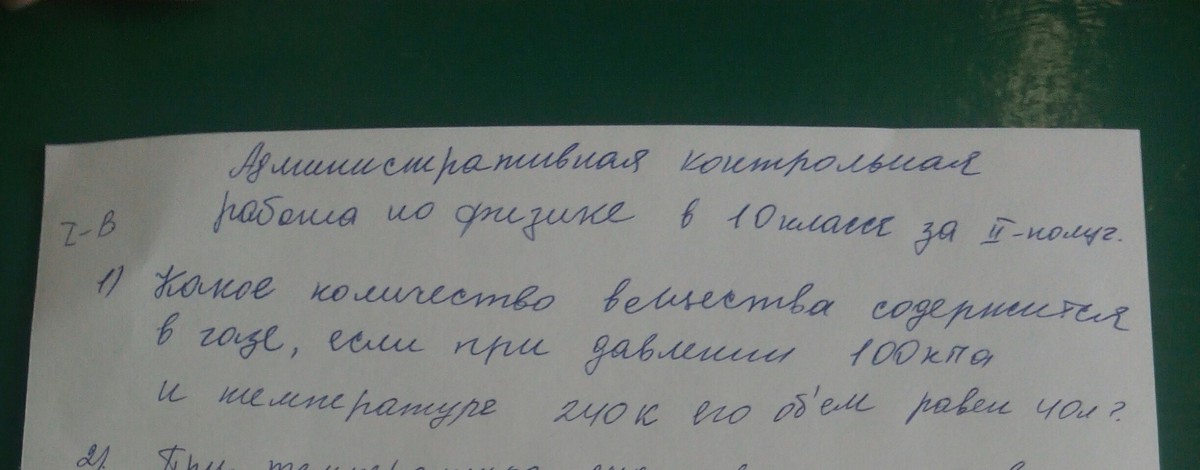 Административная контрольная
работа по физике в 10 классе за II-полуг.
I-В
1) Какое количество вещества содержится
в газе, если при давлении 100кпа
и температуре 240к его об'ем равен 40л?
2) При